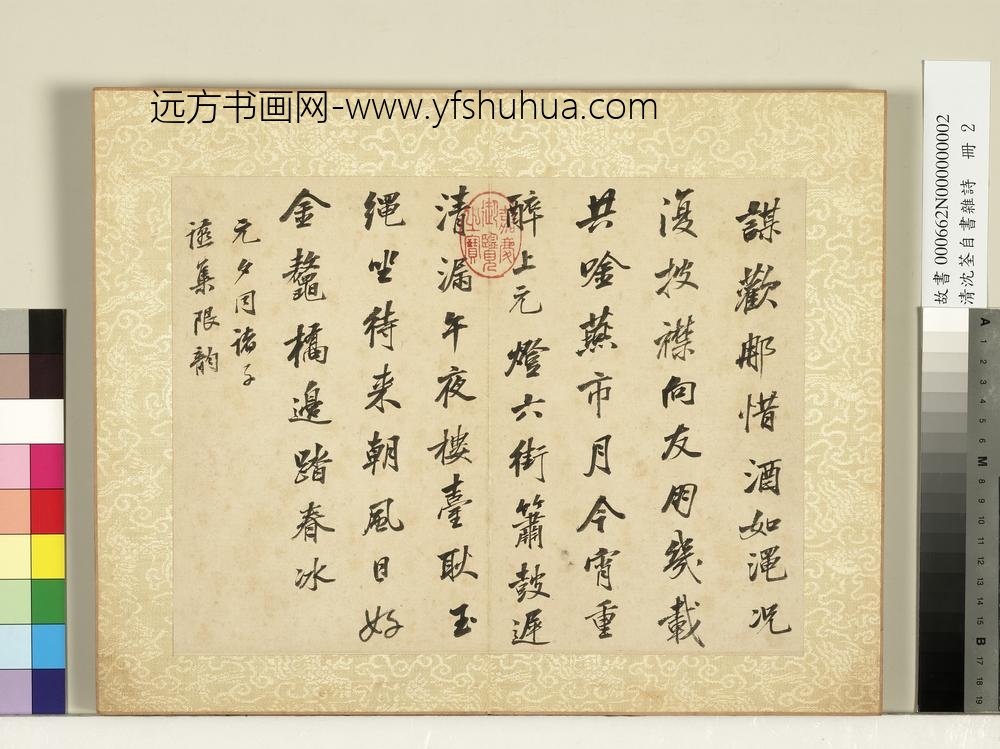 远方书画网-www.yfshuhua.com
謀歡那惜酒如澠况
復披襟向友朋幾載
共唫燕市月今宵重
醉上元燈六街簫鼓遲
清漏午夜樓臺耿玉
繩坐待来朝風日好
金鼇橋邊踏春冰
元夕同諸子
讌集限韵
嘉慶御覽之寶
故書 000662N000000002
清沈荃自書雜詩 冊 2
A 1 2 3 4 5 6 M 8 9 10 11 12 13 14 15 B 17 18 19